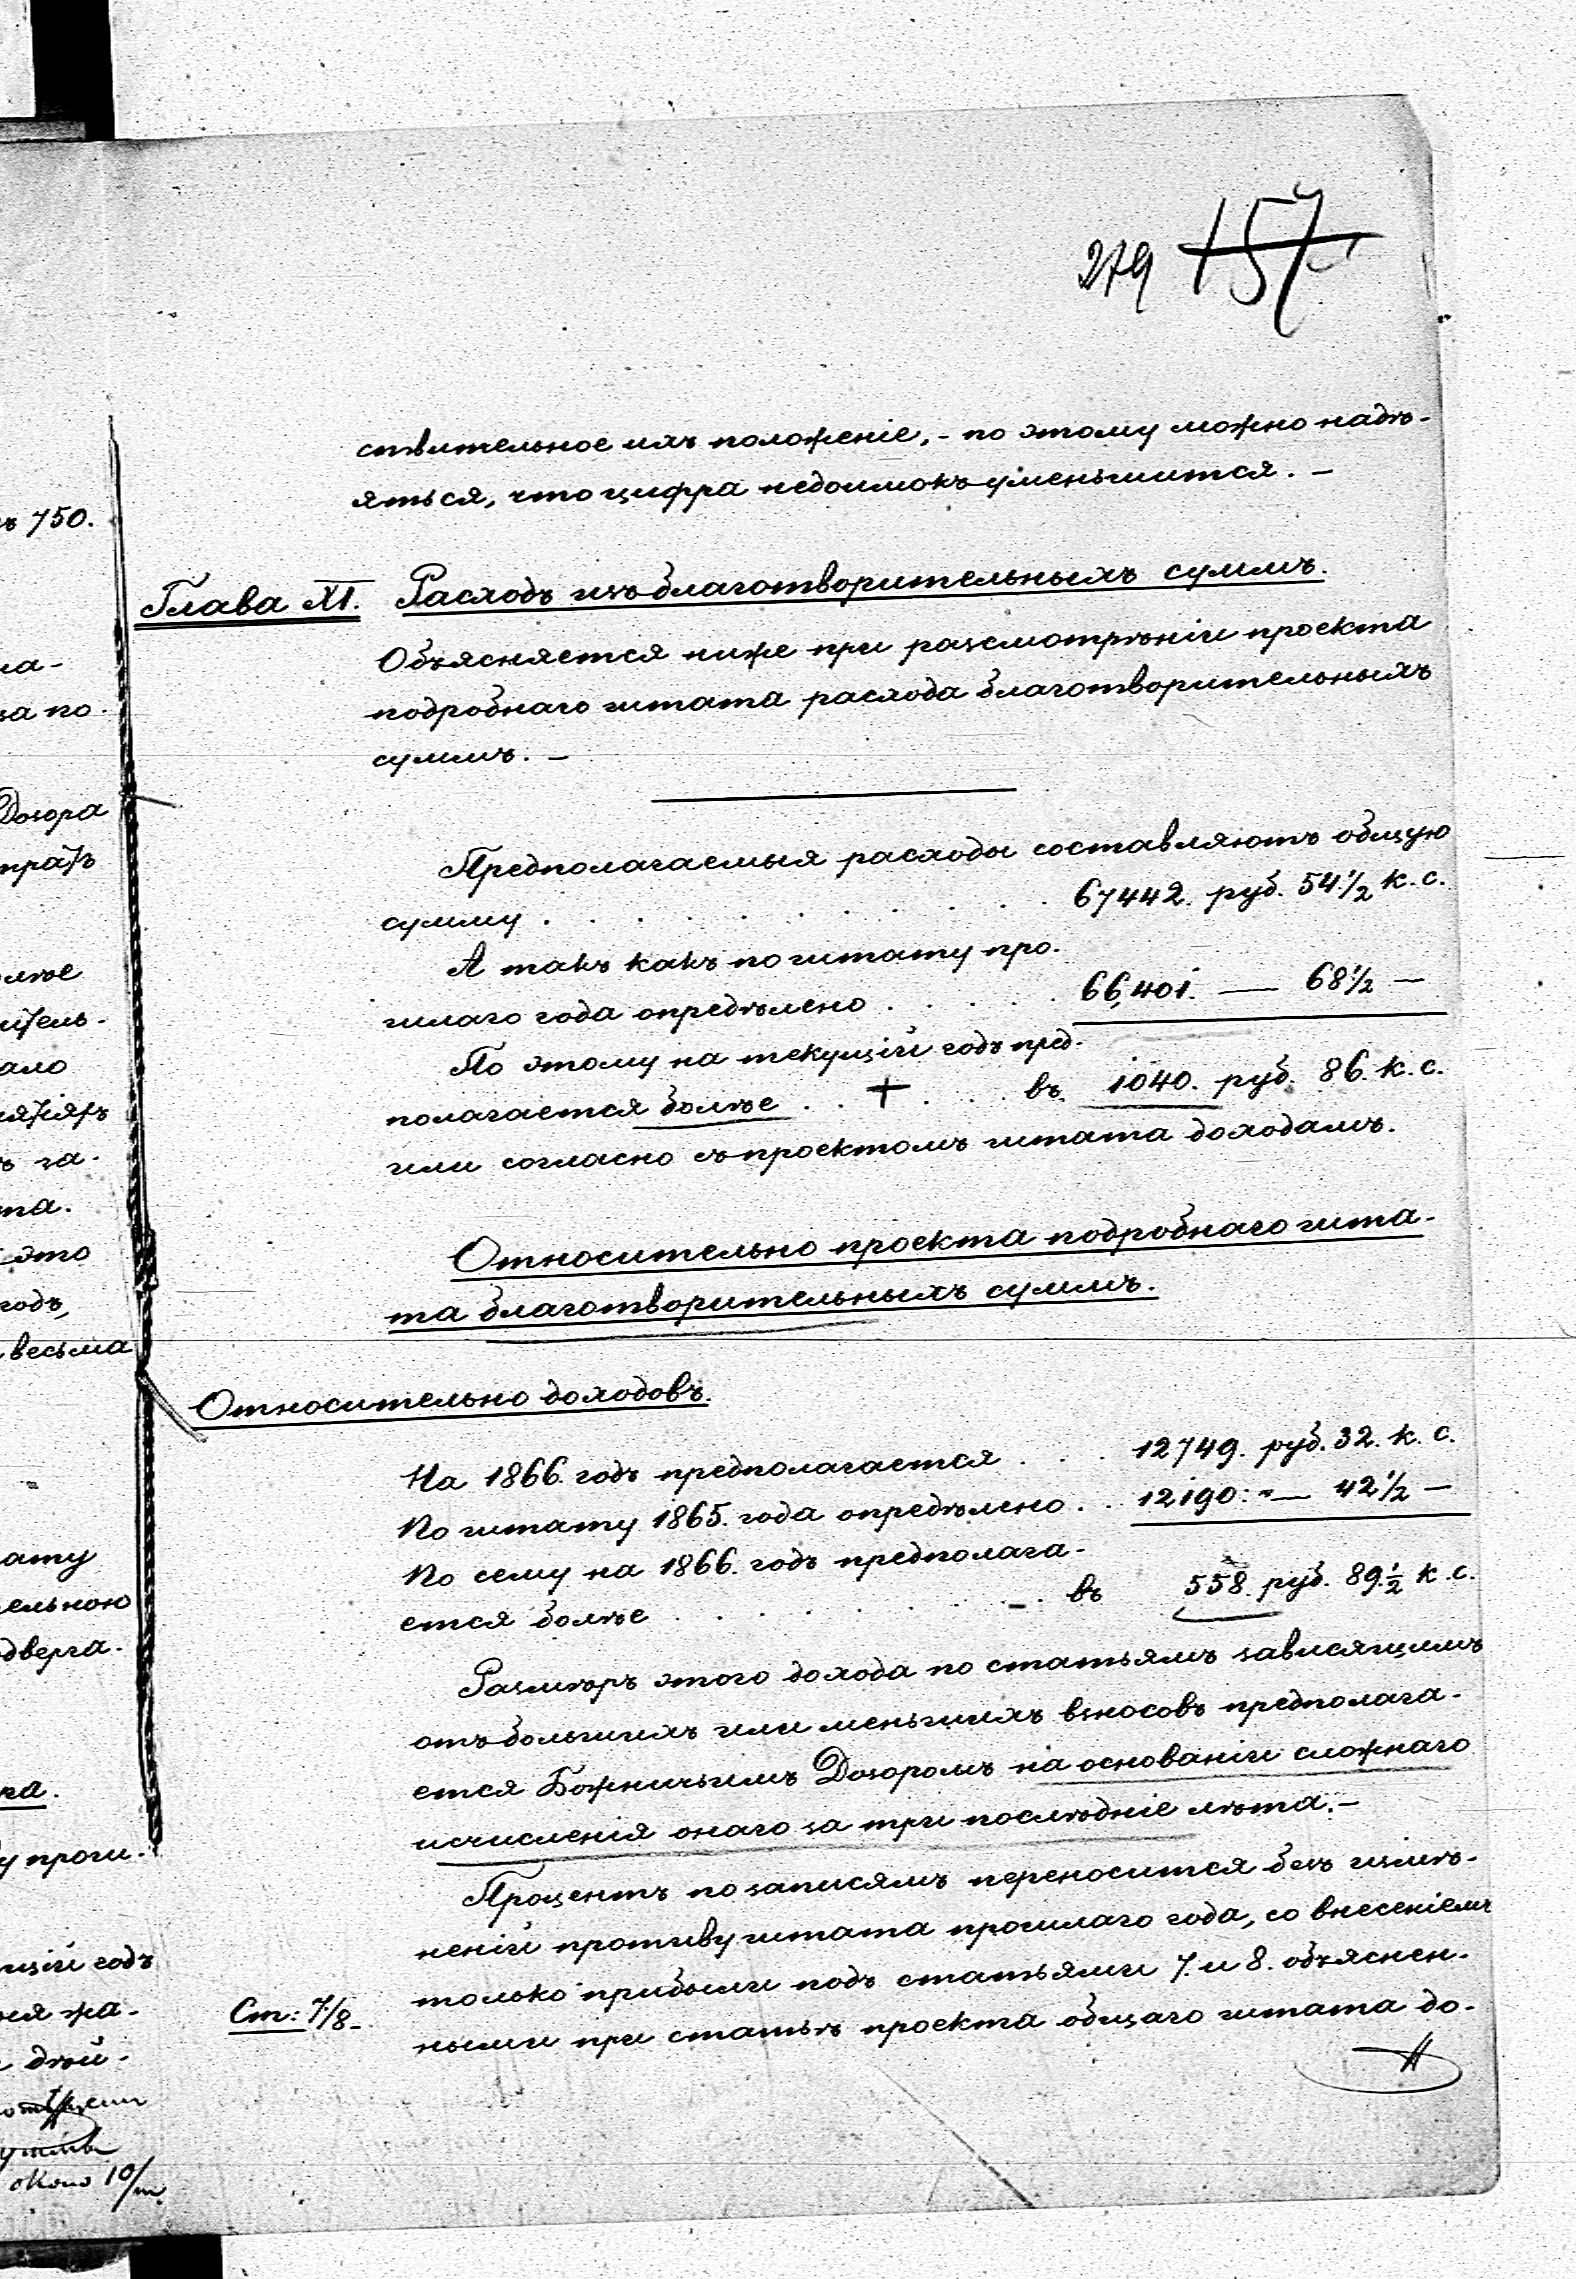 279 157
ствительное ихъ положеніе, - по этому можно надѣ-
яться, что цифра недоимокъ уменьшится. -
Глава XI. Расходъ изъ благотворительныхъ суммъ.
Объясняется ниже при разсмотрѣніи проекта
подробнаго штата расхода благотворительныхъ
суммъ. -
Предполагаемыя расходы составляютъ общую
сумму . . . . . . . . . . . 67442. руб. 54 1/2 к. с.
А такъ какъ по штату про-
шлаго года опредѣлено . . . . . 66,401. — 68 1/2 —
По этому на текущій годъ пред-
полагается болѣе . . + . . . въ 1040. руб. 86. к. с.
или согласно съ проектомъ штата доходамъ.
Относительно проекта подробнаго шта-
та благотворительныхъ суммъ.
Относительно доходовъ.
На 1866. годъ предполагается . . . 12749. руб. 32. к. с.
По штату 1865. года опредѣлено . . 12190. — 42 1/2 —
По сему на 1866. годъ предполага-
ется болѣе . . . . . . . . . въ 558. руб. 89 1/2 к. с.
Размѣръ этого дохода по статьямъ зависящимъ
отъ большихъ или меньшихъ взносовъ предполага-
ется Божничьимъ Дозоромъ на основаніи сложнаго
исчисленія онаго за три послѣдніе лѣта. -
Процентъ по записямъ переносится безъ измѣ-
неній противу штата прошлаго года, со внесеніемъ
только прибыли подъ статьями 7. и 8. объяснен-
Ст: 7/8 -
ными при статьѣ проекта общаго штата до-
ъ 750.
ла-
за по-
Дозора
тратъ
олѣе
итель-
ало
ъ за-
та.
это
годъ,
весьма
ату
ельною
одверга-
ка.
у прош-
щій годъ
ія жа-
дѣй-
около 10/м